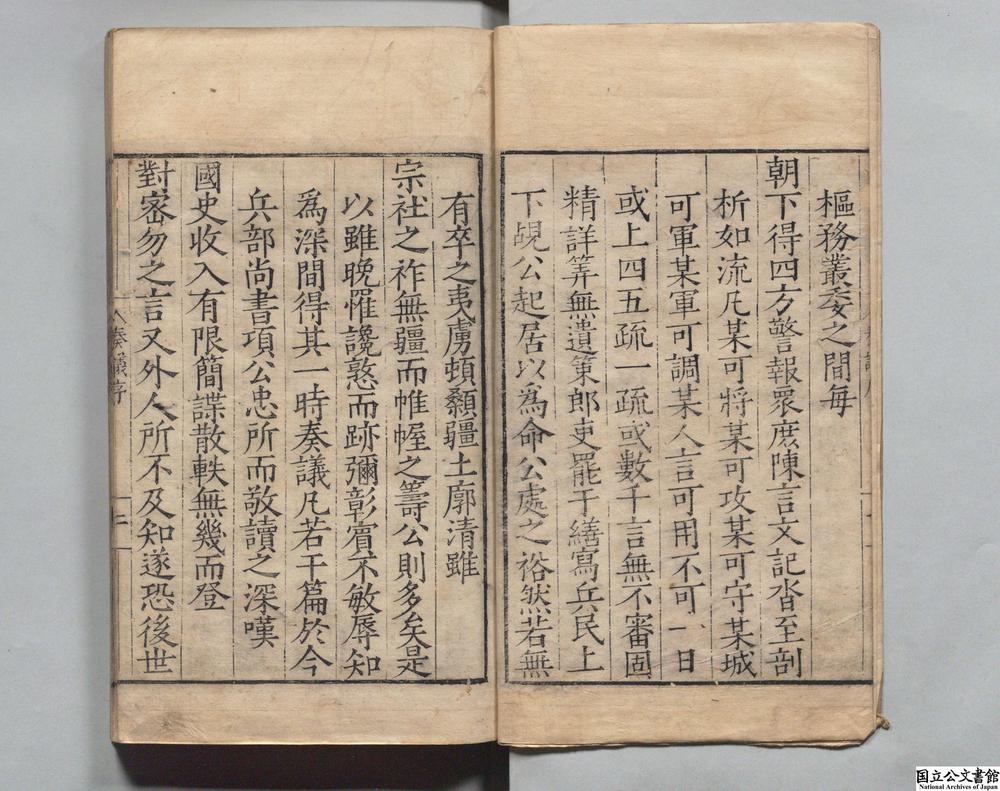 樞務叢委之間每
朝下得四方警報眾庶陳言文記沓至剖
析如流凡某可將某可攻某可守某城
可軍某軍可調某人言可用不可一日
或上四五疏一疏或數千言無不審固
精詳筭無遺策郎吏罷于繕寫兵民上
下覘公起居以為命公處之裕然若無
有卒之夷虜頓顙疆土廓清雖
宗社之祚無疆而帷幄之籌公則多矣是
以雖晚罹讒慝而跡彌彰賓不敏辱知
為深間得其一時奏議凡若干篇於今
兵部尚書項公忠所而敬讀之深嘆
國史收入有限簡諜散軼無幾而登
對密勿之言又外人所不及知遂恐後世
奏議序
二
国立公文書館
National Archives of Japan